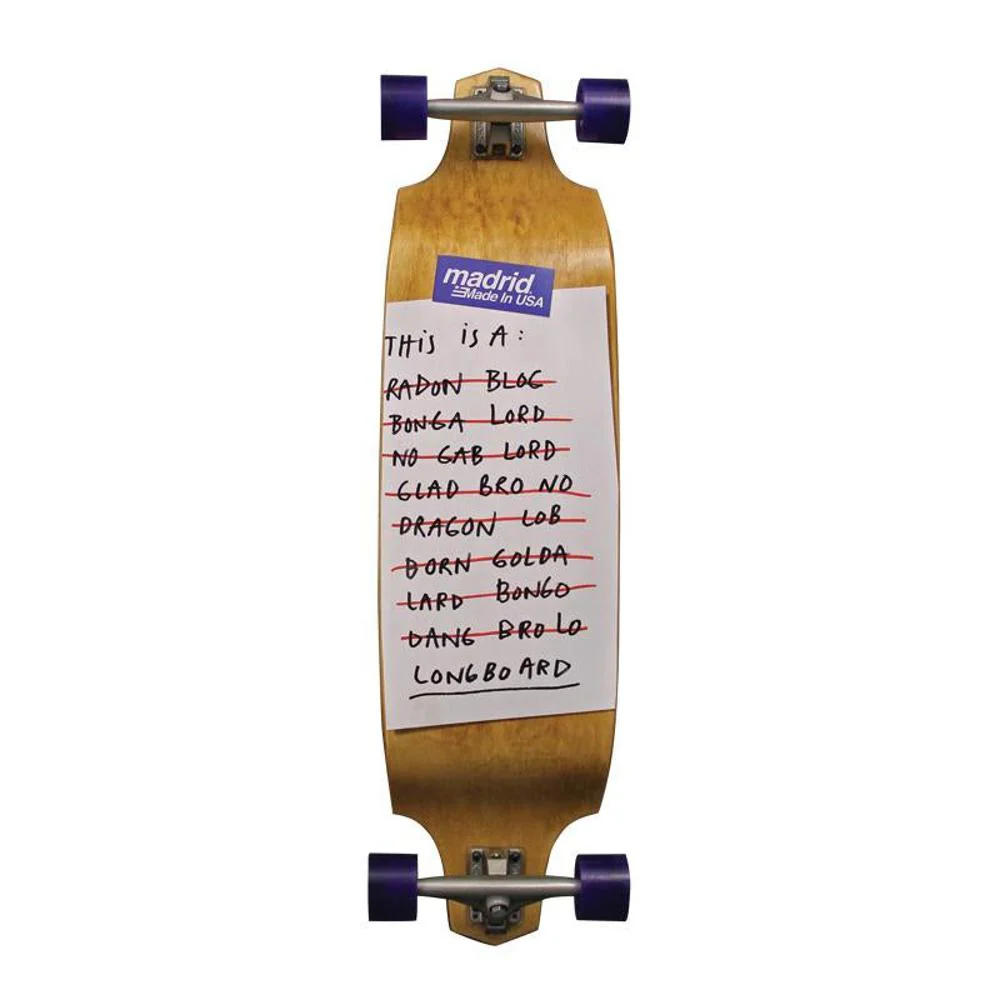 madrid
Made In USA
THis is A:
RADON BLOG
BONGA LORD
NO GAB LORD
GLAD BRO NO
DRAGON LOB
DORN GOLDA
LARD BONGO
DANG BRO LO
LONGBOARD